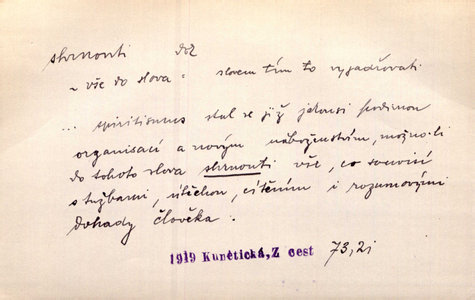 shrnouti dož
~ vše do slova = slovem tím to vyjadřovati
... spiritismus stal se již jakousi
organisací a novým náboženstvím, možno-li
do tohoto slova shrnouti vše, co souvisí
s tužbami, útěchou, cítěním i rozumovými
dohady člověka.
1919 Kunětická, Z cest 73, 2i